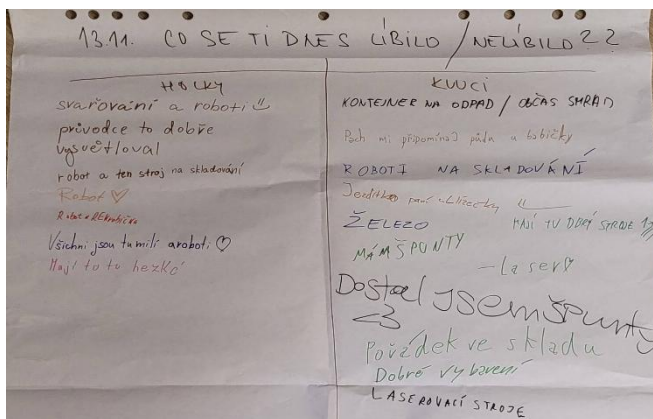 13.11. CO SE TI DNES LÍBILO / NELÍBILO ??
HOLKY
svařování a roboti
průvodce to dobře
vysvětloval
robot a ten stroj na skladování
Robot ♡
Všichni jsou tu milí a roboti ♡
Mají to tu hezké
KLUCI
KONTEJNER NA ODPAD / OBČAS SMRAD
Pach mi připomínal půdu u babičky
ROBOTI NA SKLADOVÁNÍ
paní uklízečky
ŽELEZO
MAJÍ TU DOBRÝ STROJE
MÁM ŠPUNTY
- Laser♡
Dostal jsem špunty
<3
Pořádek ve skladu
Dobré vybavení
LASEROVACÍ STROJE